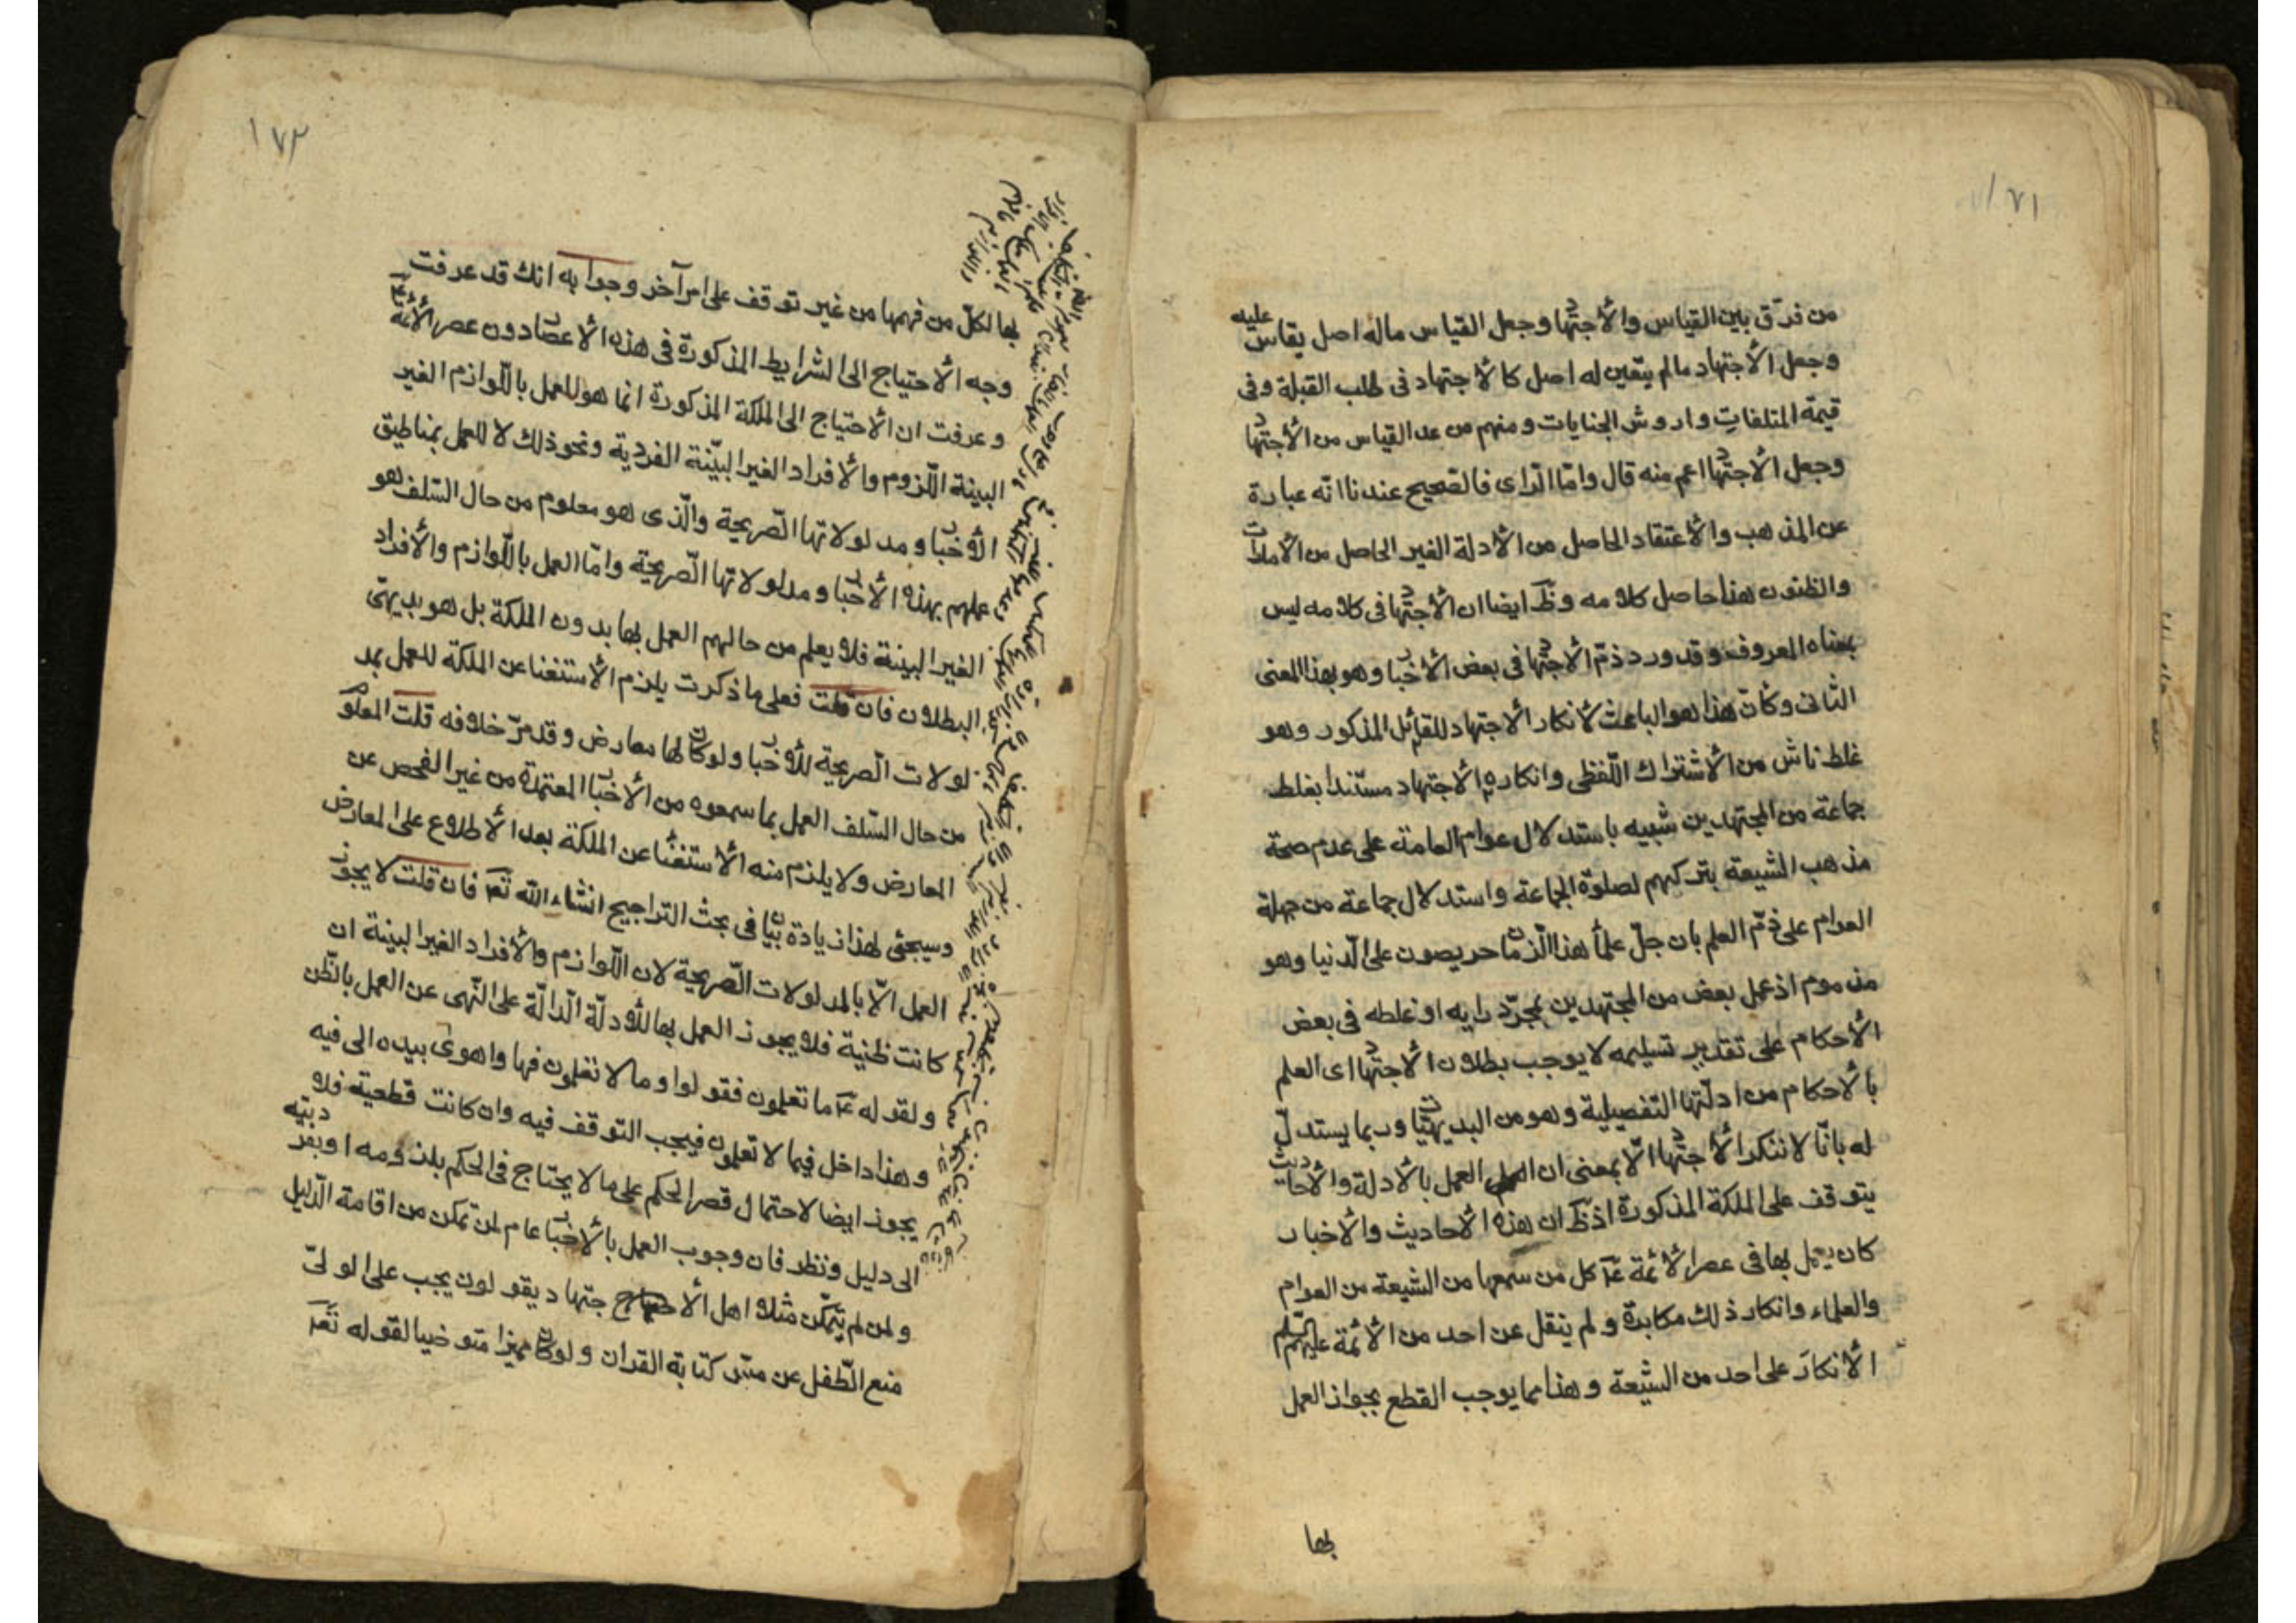 ١٧١
من فرّق بين القياس والأجتهاد وجعل القياس ماله اصل يقاس عليه
وجعل الأجتهاد مالم يتعين له اصل كالأجتهاد فى طلب القبلة وفى
قيمة المتلفات واروش الجنايات ومنهم من عد القياس من الأجتهاد
وجعل الأجتهاد اعم منه قال وامّا الراى فالصّحيح عندنا انّه عبارة
عن المذهب والأعتقاد الحاصل من الأدلة الغير الحاصل من الأمارات
والظنون هذا حاصل كلامه وظَهَر ايضا ان الأجتهاد فى كلامه ليس
بمعناه المعروف وقد ورد ذمّ الأجتهاد فى بعض الأخبار وهو بهذا المعنى
الثانى وكأنّ هذا هو الباعث لأنكار الأجتهاد للقائل المذكور وهو
غلط ناش من الأشتراك اللّفظى وانكاره الأجتهاد مستندا بغلط
جماعة من المجتهدين شبيه باستدلال عوام العامة على عدم صحة
مذهب الشيعة بتركهم لصلوة الجماعة واستدلال جماعة من جهلة
العوام على ذمّ العلم بان جلّ علماء هذا الزمان حريصون على الدّنيا وهو
مذموم اذ عمل بعض من المجتهدين بمجرّد رايه او غلطه فى بعض
الأحكام على تقدير تسليمه لا يوجب بطلان الأجتهاد اى العلم
بالأحكام من ادلّتها التّفصيلية وهو من البديهيّات وربما يستدلّ
له بانّا لا ننكر الأجتهاد الّا بمعنى ان العمل بالأدلة والأحاديث
يتوقف على الملكة المذكورة اذ ظَهَر ان هذه الأحاديث والأخبار
كان يعمل بها فى عصر الأئمة عَم كل من سمعها من الشيعة من العوام
والعلماء وانكار ذلك مكابرة ولم ينقل عن احد من الأئمة عليهم السّلم
الأنكار على احد من الشيعة وهذا مما يوجب القطع بجواز العمل
بها
١٧٢
بها لكلّ من فهمها من غير توقف على امر آخر وجوابه انك قد عرفت
وجه الأحتياج الى الشرايط المذكورة فى هذه الأعصار دون عصر الأئمّة عَم
وعرفت ان الأحتياج الى الملكة المذكورة انما هو للعمل باللّوازم الغير
البينة اللّزوم والأفراد الغير البيّنة الفردية ونحو ذلك لا للعمل بمناطيق
الأخبار ومدلولاتها الصّريحة والّذى هو معلوم من حال السّلف هو
عملهم بهذه الأخبار ومدلولاتها الصّريحة وامّا العمل باللّوازم والأفراد
الغير البينة فلا يعلم من حالهم العمل بها بدون الملكة بل هو بديهىّ
البطلان فان قلت فعلى ما ذكرت يلزم الأستغنا عن الملكة للعمل بمد
لولات الصّريحة للأخبار ولو كان لها معارض وقد مرّ خلافه قلت المعلوم
من حال السّلف العمل بما سمعوه من الأخبار المعتمدة من غير الفحص عن
المعارض ولا يلزم منه الأستغنا عن الملكة بعد الأطلاع على المعارض
وسيجئ لهذا زيادة بيان فى بحث التراجيح انشاء الله تَعَ فان قلت لا يجوز
العمل الّا بالمدلولات الصّريحة لان اللّوازم والأفراد الغير البينة ان
كانت ظنية فلا يجوز العمل بها للأدلّة الدّالّة على النّهى عن العمل بالظّن
ولقوله عَم ما تعلمون فقولوا وما لا تعلمون فها واهوى بيده الى فيه
وهذا داخل فيما لا تعلمون فيجب التوقف فيه وان كانت قطعية فلا
يجوز ايضا لاحتمال قصر الحكم على ما لا يحتاج فى الحكم بلزومه او بفرديته
الى دليل ونظر فان وجوب العمل بالأخبار عام لمن تمكن من اقامة الدّليل
ولمن لم يتمكّن مثلا اهل الأجتهاد يقولون يجب على الولىّ
منع الطّفل عن مسّ كتابة القران ولو كان مميزا متوضيا لقوله تَعَ